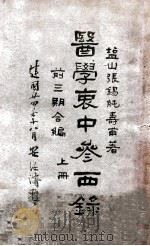 鹽山張錫純壽甫著
醫學衷中參西錄
前三期合編 上冊
國廿四年